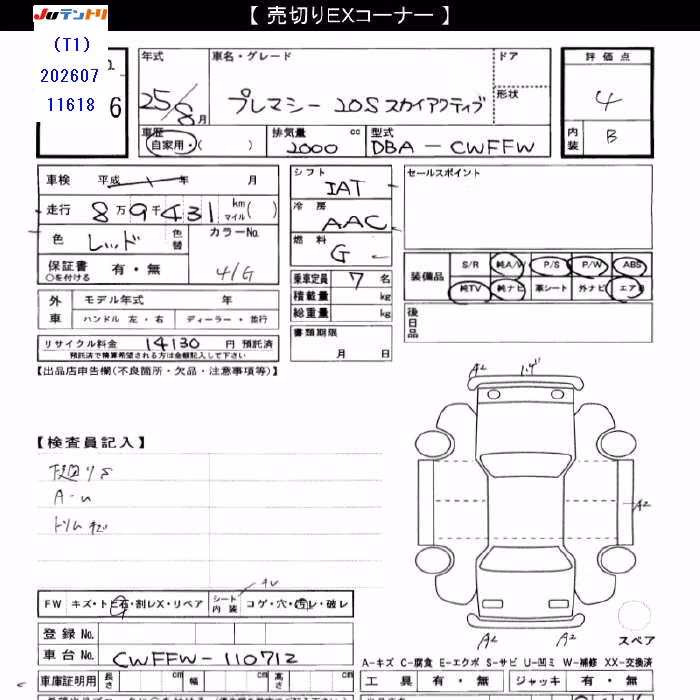 【 売切りEXコーナー 】
JUテントリ
(T1)
202607
11618
6
年式 車名・グレード ドア 評価点
25/8月 プレマシー 20S スカイアクティブ 形状 4
車歴 排気量 cc 型式 内装 B
自家用・( ) 2000 DBA-CWFFW
車検 平成 年 月 シフト IAT セールスポイント
走行 8万9千431 km マイル( ) 冷房 AAC
色 レッド 色替 カラーNo. 燃料 G
保証書 有・無 41G
○を付ける
乗車定員 7 名 装備品 S/R 純A/W P/S P/W ABS
積載量 kg 純TV 純ナビ 革シート 外ナビ エアB
総重量 kg
外車 モデル年式 年 後日品
ハンドル 左・右 ディーラー・並行
書類期限
月 日
リサイクル料金 14130 円 預託済
預託済で精算希望される方は金額記入して下さい
【出品店申告欄(不良箇所・欠品・注意事項等)】
A2
【検査員記入】
下廻りS
A-U
トリムキズ
A2
FW キズ・ト・石・割レX・リペア シート内装 コゲ・穴・汚レ・破レ
A2 A2
スペア
登録No.
車台No. CWFFW-110712
A-キズ C-腐食 E-エクボ S-サビ U-凹ミ W-補修 XX-交換済
車庫証明用 長さ cm 幅 cm 高さ cm 工具 有・無 ジャッキ 有・無